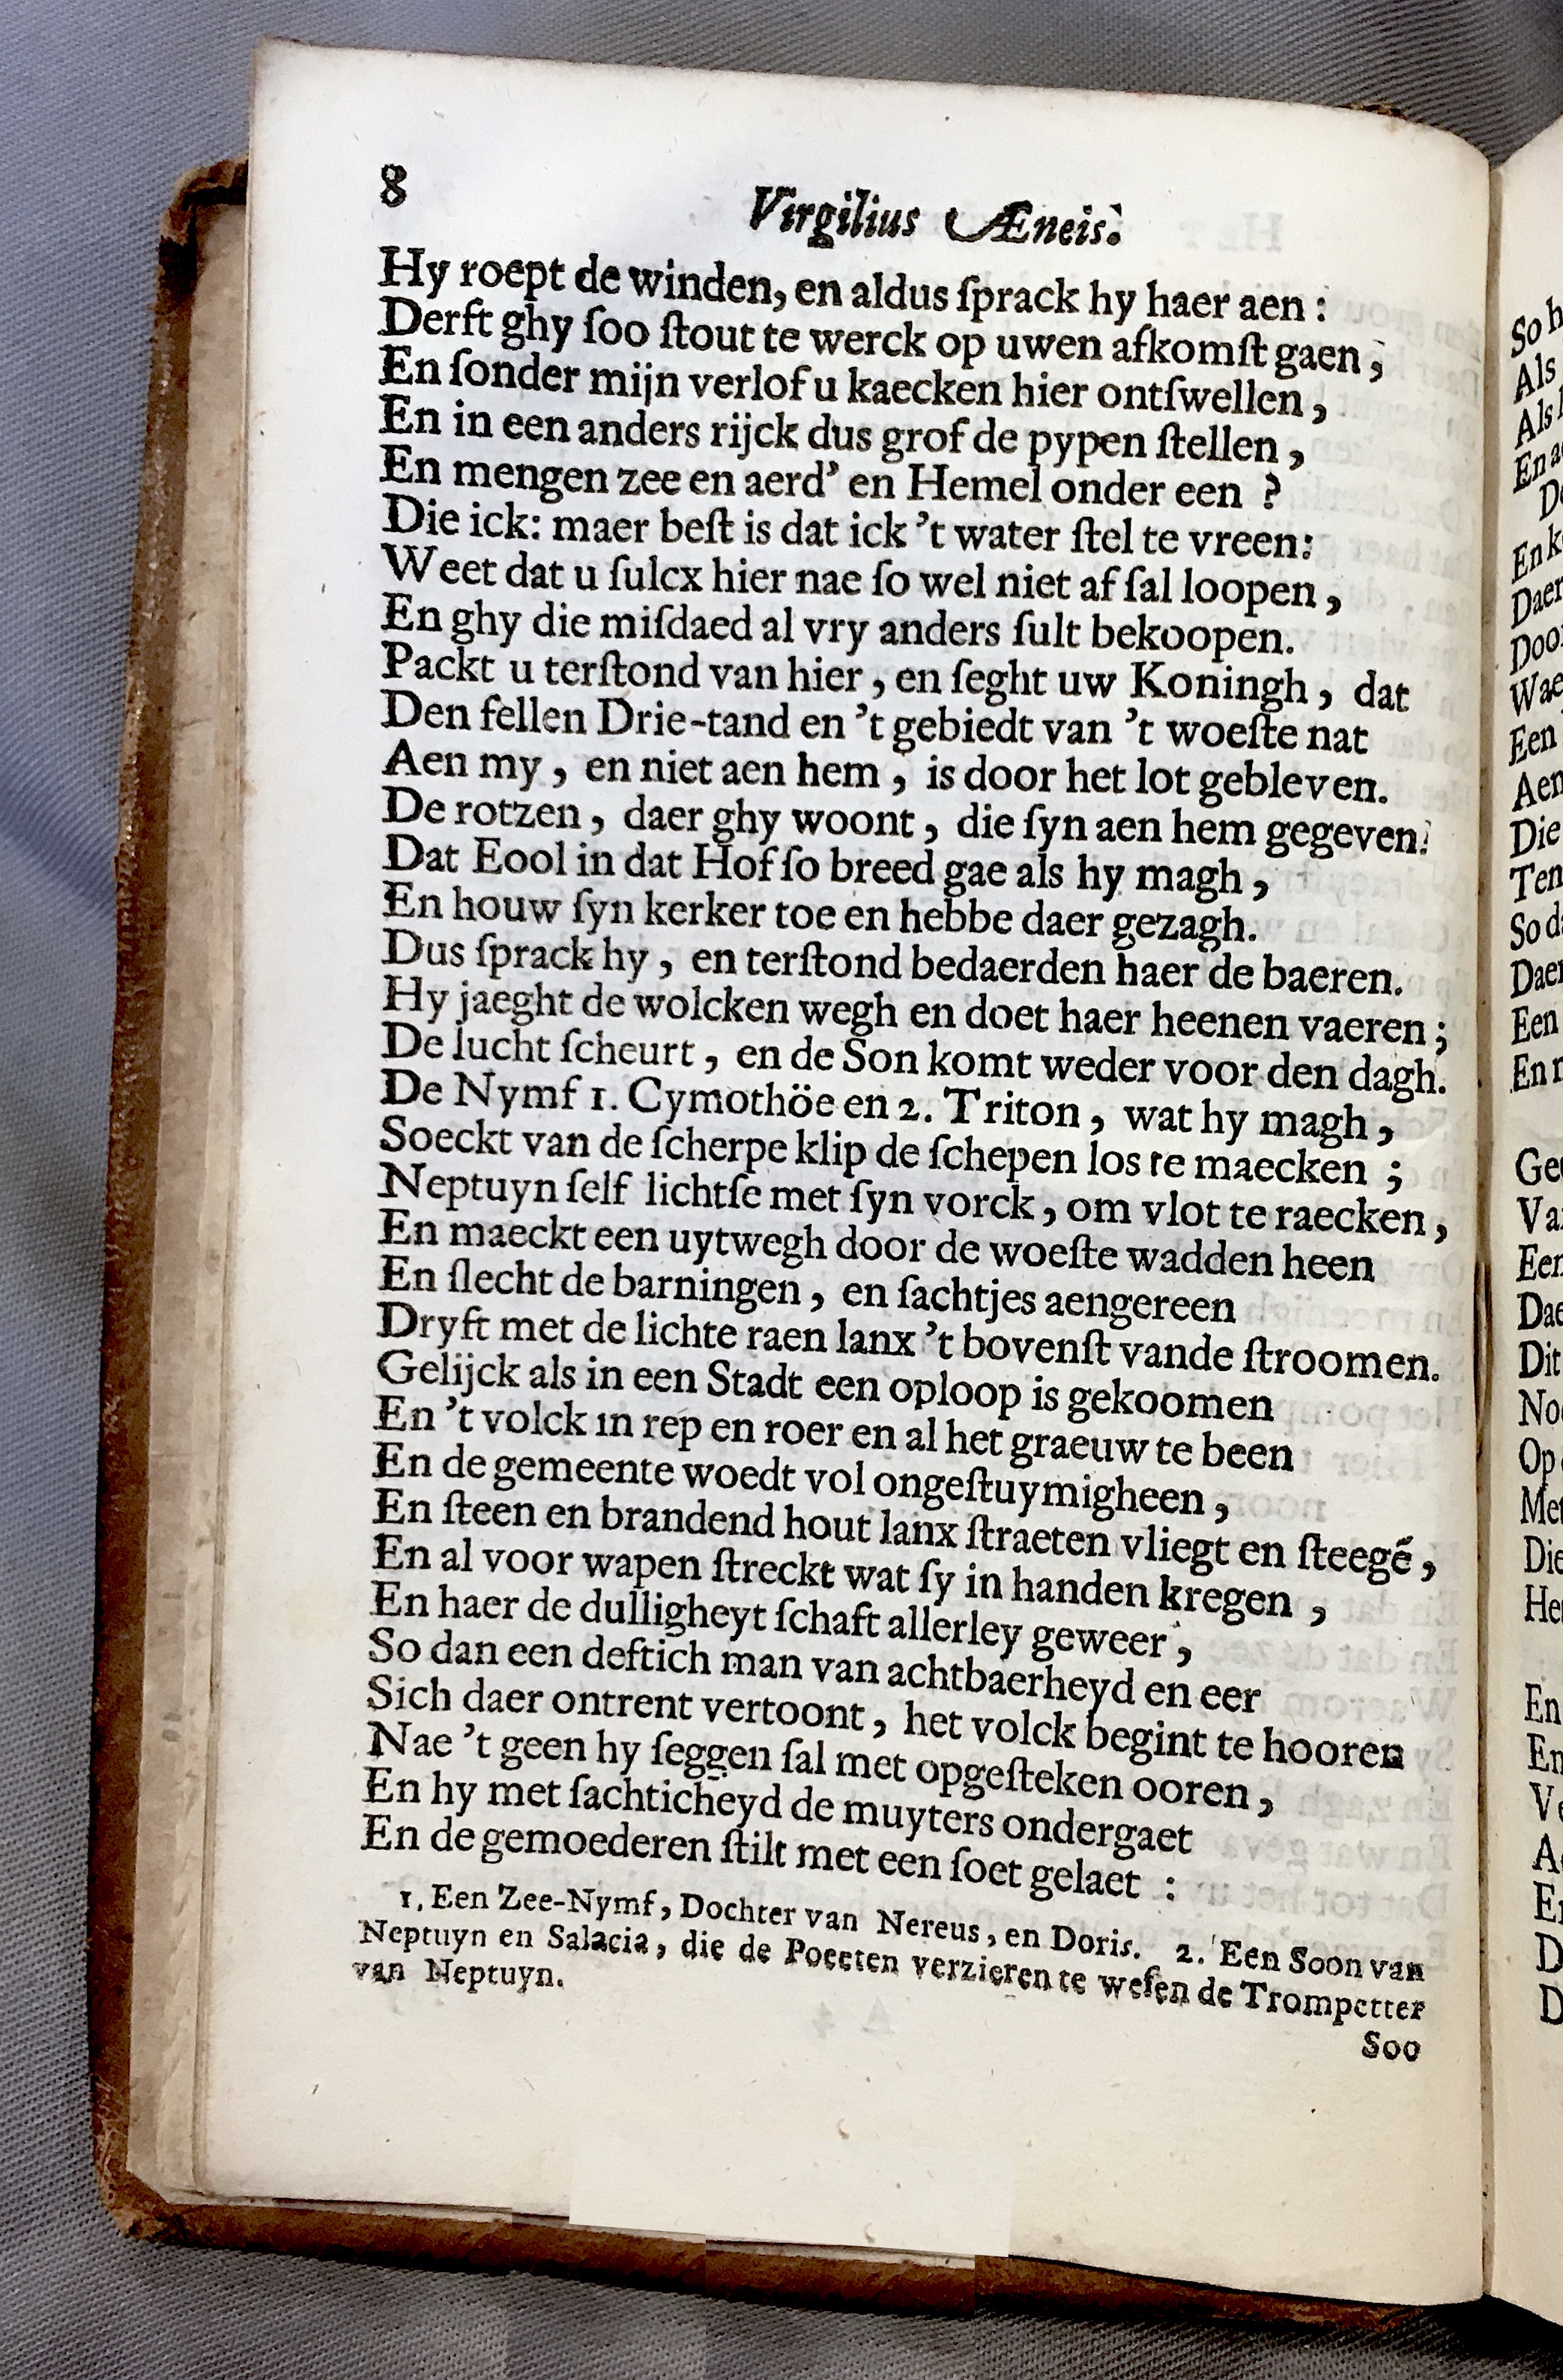 8
Virgilius Æneis.
Hy roept de winden, en aldus ſprack hy haer aen :
Derft ghy ſoo ſtout te werck op uwen afkomſt gaen,
En ſonder mijn verlof u kaecken hier ontſwellen,
En in een anders rijck dus grof de pypen ſtellen,
En mengen zee en aerd’ en Hemel onder een ?
Die ick: maer beſt is dat ick ’t water ſtel te vreen:
Weet dat u ſulcx hier nae ſo wel niet af ſal loopen,
En ghy die miſdaed al vry anders ſult bekoopen.
Packt u terſtond van hier, en ſeght uw Koningh, dat
Den fellen Drie-tand en ’t gebiedt van ’t woeſte nat
Aen my, en niet aen hem, is door het lot gebleven.
De rotzen, daer ghy woont, die ſyn aen hem gegeven.
Dat Eool in dat Hof ſo breed gae als hy magh,
En houw ſyn kerker toe en hebbe daer gezagh.
Dus ſprack hy, en terſtond bedaerden haer de baeren.
Hy jaeght de wolcken wegh en doet haer heenen vaeren;
De lucht ſcheurt, en de Son komt weder voor den dagh.
De Nymf 1. Cymothöe en 2. Triton, wat hy magh,
Soeckt van de ſcherpe klip de ſchepen los te maecken ;
Neptuyn ſelf lichtſe met ſyn vorck, om vlot te raecken,
En maeckt een uytwegh door de woeſte wadden heen
En ſlecht de barningen, en ſachtjes aengereen
Dryft met de lichte raen lanx ’t bovenſt vande ſtroomen.
Gelijck als in een Stadt een oploop is gekoomen
En ’t volck in rep en roer en al het graeuw te been
En de gemeente woedt vol ongeſtuymigheen,
En ſteen en brandend hout lanx ſtraeten vliegt en ſteegẽ,
En al voor wapen ſtreckt wat ſy in handen kregen,
En haer de dulligheyt ſchaft allerley geweer,
So dan een deftich man van achtbaerheyd en eer
Sich daer ontrent vertoont, het volck begint te hooren
Nae ’t geen hy ſeggen ſal met opgeſteken ooren,
En hy met ſachticheyd de muyters ondergaet
En de gemoederen ſtilt met een ſoet gelaet :
1. Een Zee-Nymf, Dochter van Nereus, en Doris. 2. Een Soon van
Neptuyn en Salacia, die de Poeeten verzieren te weſen de Trompetter
van Neptuyn.
Soo